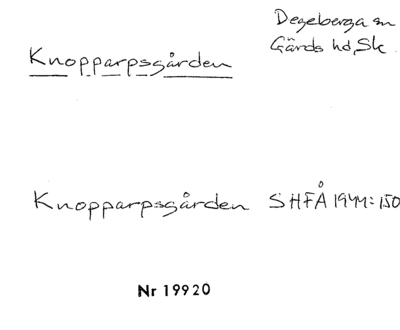 Degeberga sn
Gärds hd, Sk.
Knopparpsgården
Knopparpsgården SHFÅ 1944:150
Nr 19920